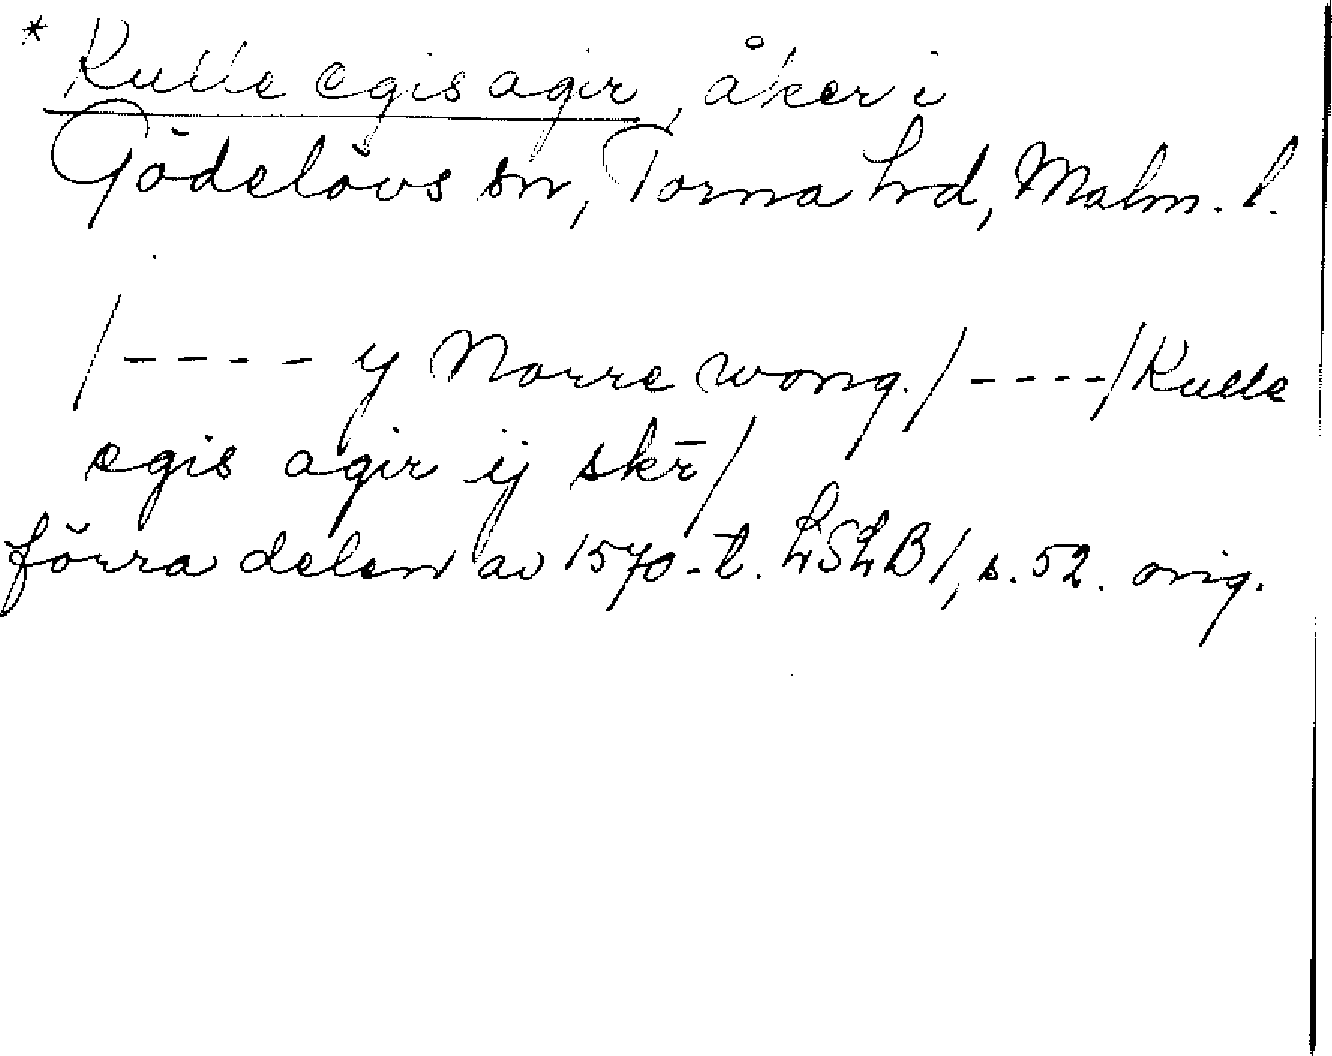 * Kulle egis agir, åker i
Gödelövs sn, Torna hrd, Malm. l.
/---- y Norre wong./----/Kulle
egis agir ij skr̄/
förra delen av 1570-t. LSLB1, s. 52. orig.